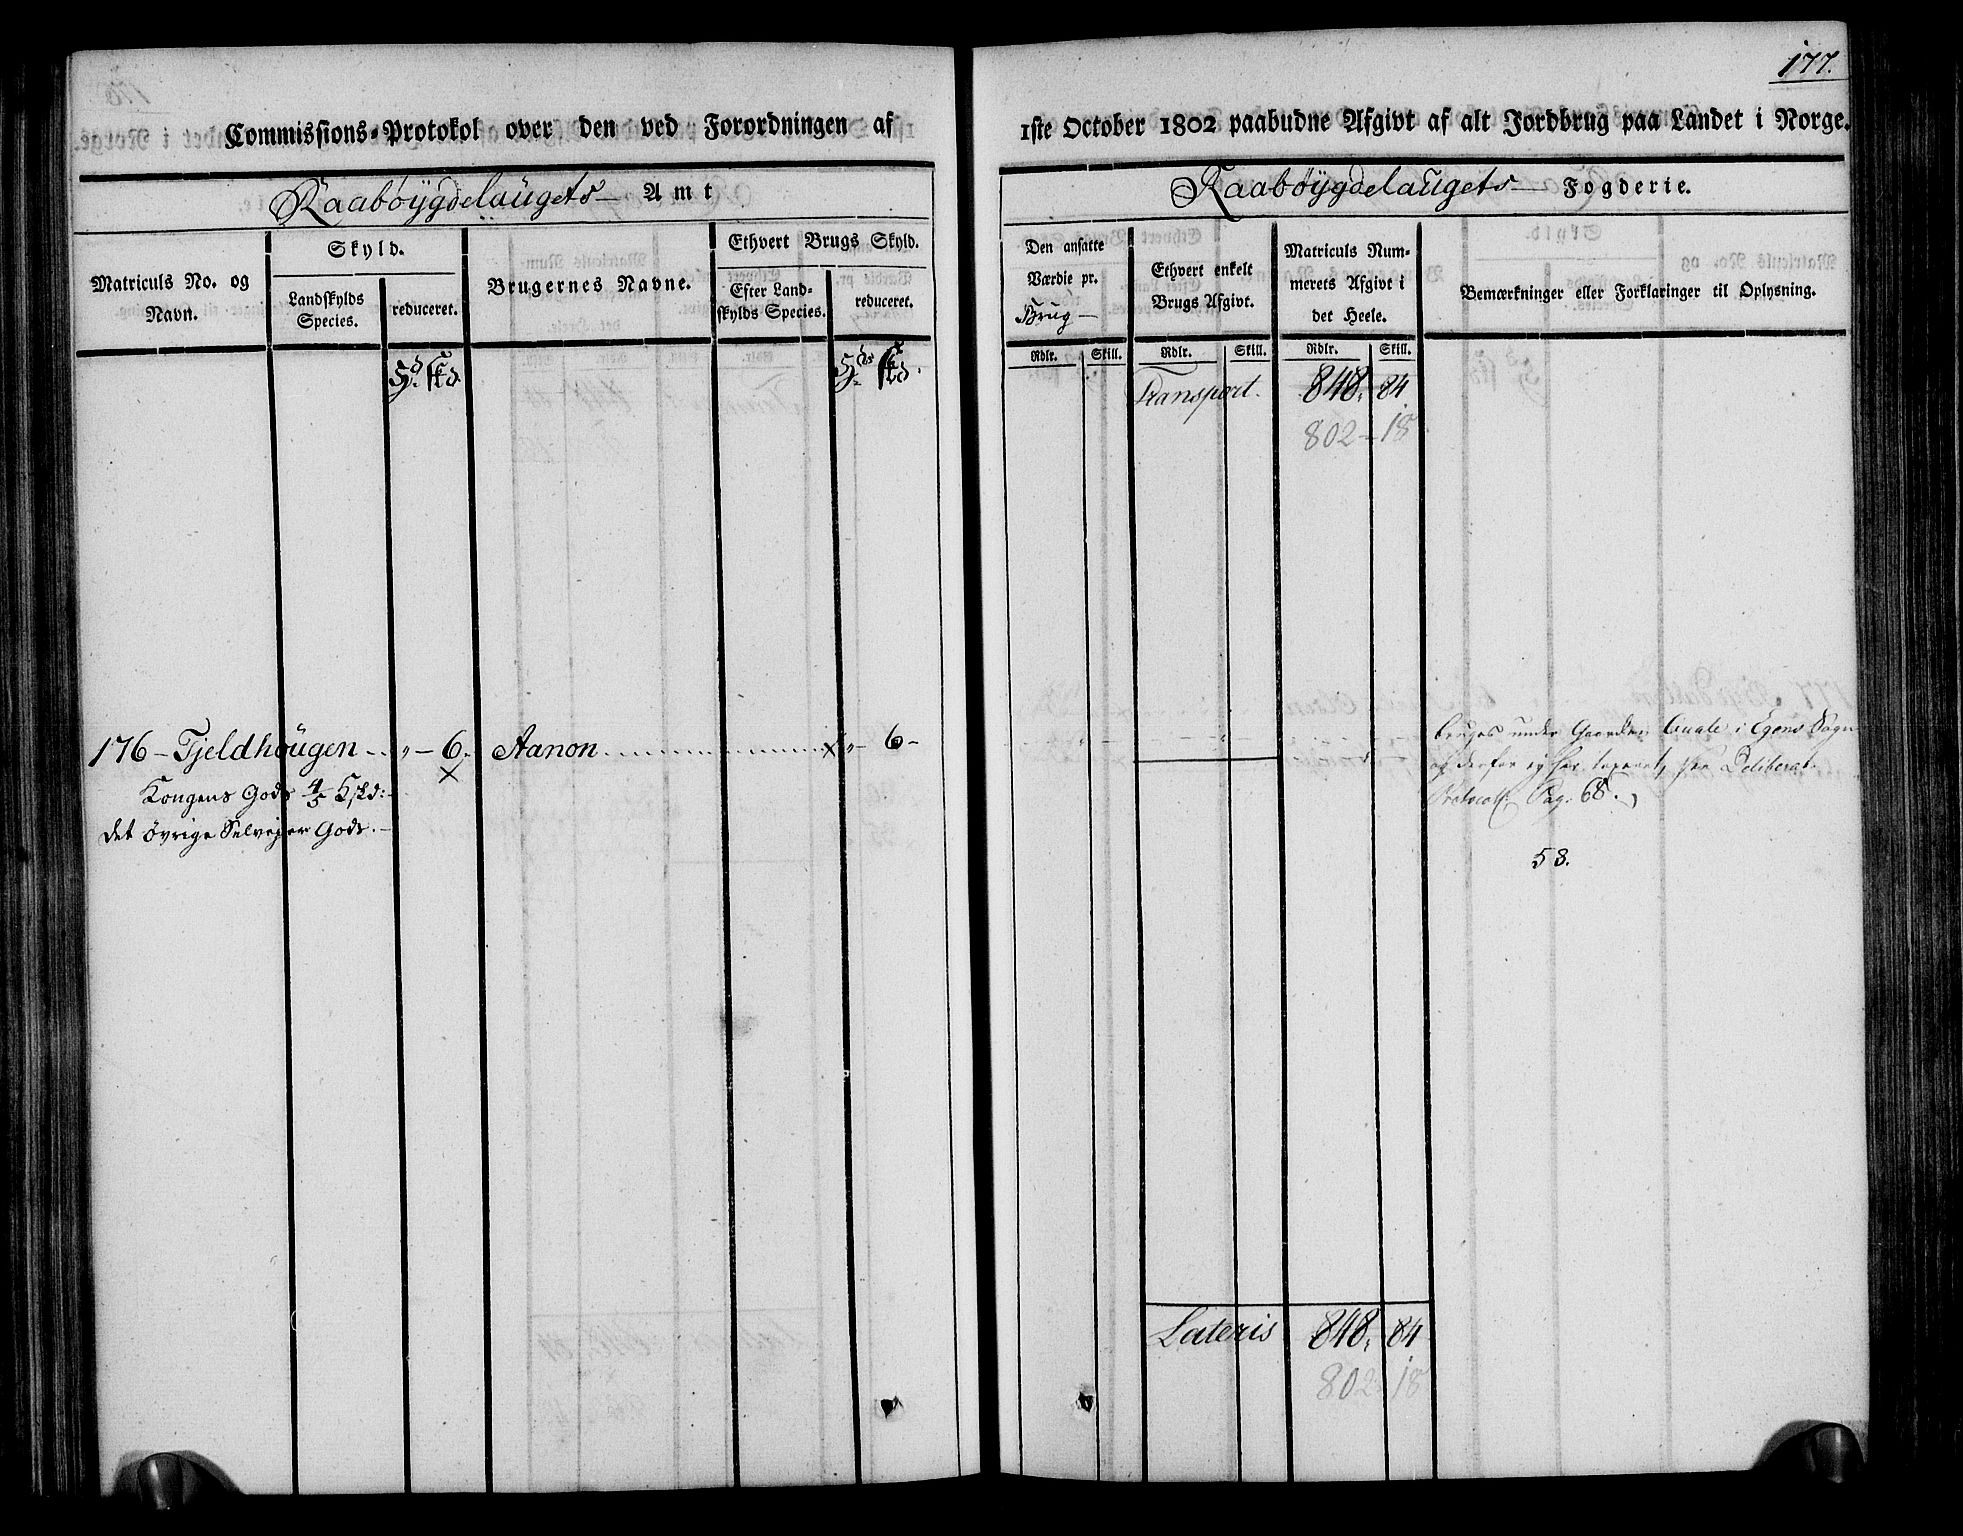 177.
Commissions-Protokol over den ved Forordningen af
1ste October 1802 paabudne Afgivt af alt Jordbrug paa Landet i Norge.
Raabøygdelaugets Amt
Raabøygdelaugets Fogderie.
Matriculs No. og
Navn.
Skyld.
Landskylds
Species.
reduceret.
Brugernes Navne.
Ethvert Brugs Skyld.
Efter Land-
skylds Species.
reduceret.
Den ansatte
Værdie pr.
Brug
Ethvert enkelt
Brugs Afgivt.
Matriculs Num-
merets Afgivt i
det Heele.
Bemærkninger eller Forklaringer til Oplysning.
Rdlr. Skill. Rdlr. Skill. Rdlr. Skill.
Transport. 848. 84.
802 - 18
176 - Fjeldhougen " - 6. Aanon x " - 6 -
x
Kongens Gods 4/5
det øvrige Selveier Gods. -
bruges under Gaarden i Egens Sogn
og derfor ej her taxeret, see Deliberat.
Protocoll. Pag. 68.
53.
Lateris 848. 84
802 18